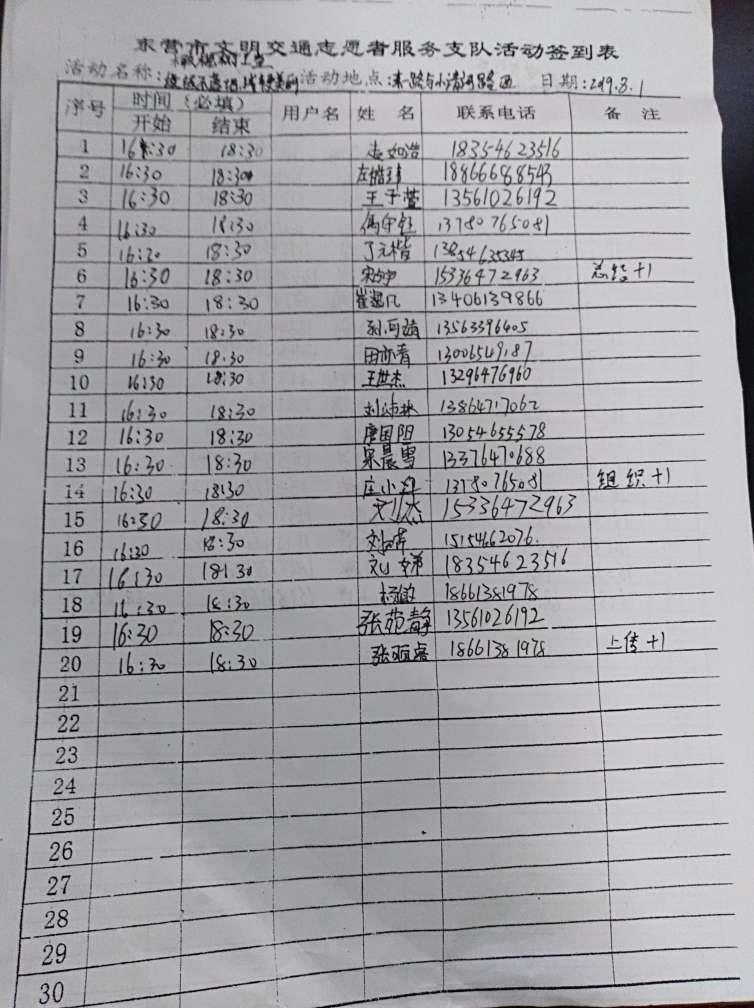 东营市文明交通志愿者服务支队活动签到表
活动名称: 活动地点: 东一路与小清河路西 日期:2019.8.1
序号 时间(必填) 用户名 姓 名 联系电话 备 注
开始 结束
1 16:30 18:30 如浩 18354623516
2 16:30 18:30 18866688543
3 16:30 18:30 王子萱 13561026192
4 16:30 18:30 13780765081
5 16:30 18:30 丁元楷 13854635345
6 16:30 18:30 15336472963 总结+1
7 16:30 18:30 崔 凡 13406139866
8 16:30 18:30 孙可 13563396405
9 16:30 18:30 田亦青 13006549187
10 16:30 18:30 王世杰 13296476960
11 16:30 18:30 刘沛林 13864717062
12 16:30 18:30 唐国阳 13054655578
13 16:30 18:30 宋晨雪 13376470688
14 16:30 18:30 庄小 13780765081 组织+1
15 16:30 18:30 刘杰 15336472963
16 16:30 18:30 刘 15154662076.
17 16:30 18:30 刘 娣 18354623516
18 16:30 18:30 杨敏 18661381978
19 16:30 18:30 张苑静 13561026192
20 16:30 18:30 张丽 18661381978 上传+1
21
22
23
24
25
26
27
28
29
30